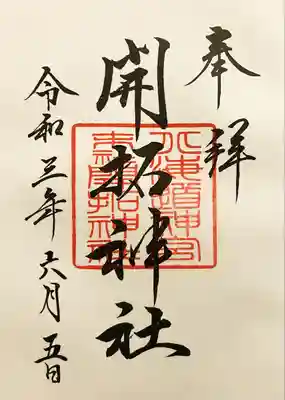 奉拝
開拓神社
北海道神宮
末社開拓神社
令和三年六月五日